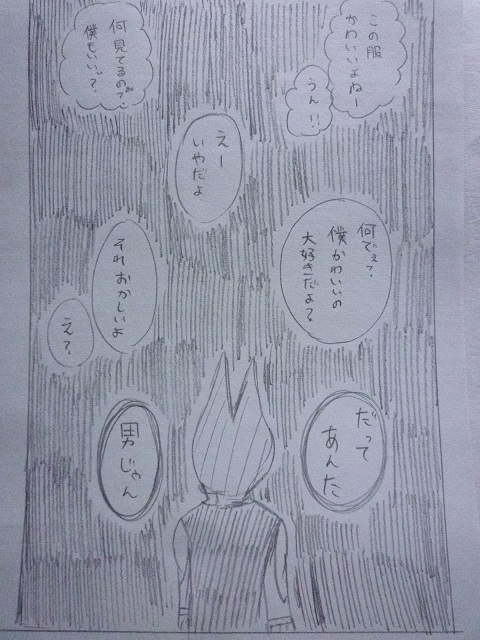 この服
かわいいよねー
うん!!
何見てるの?
僕もいい?
えー
いやだよ
何でぇ?
僕かわいいの
大好きだよ?
それおかしいよ
え?
だって
あんた
男じゃん